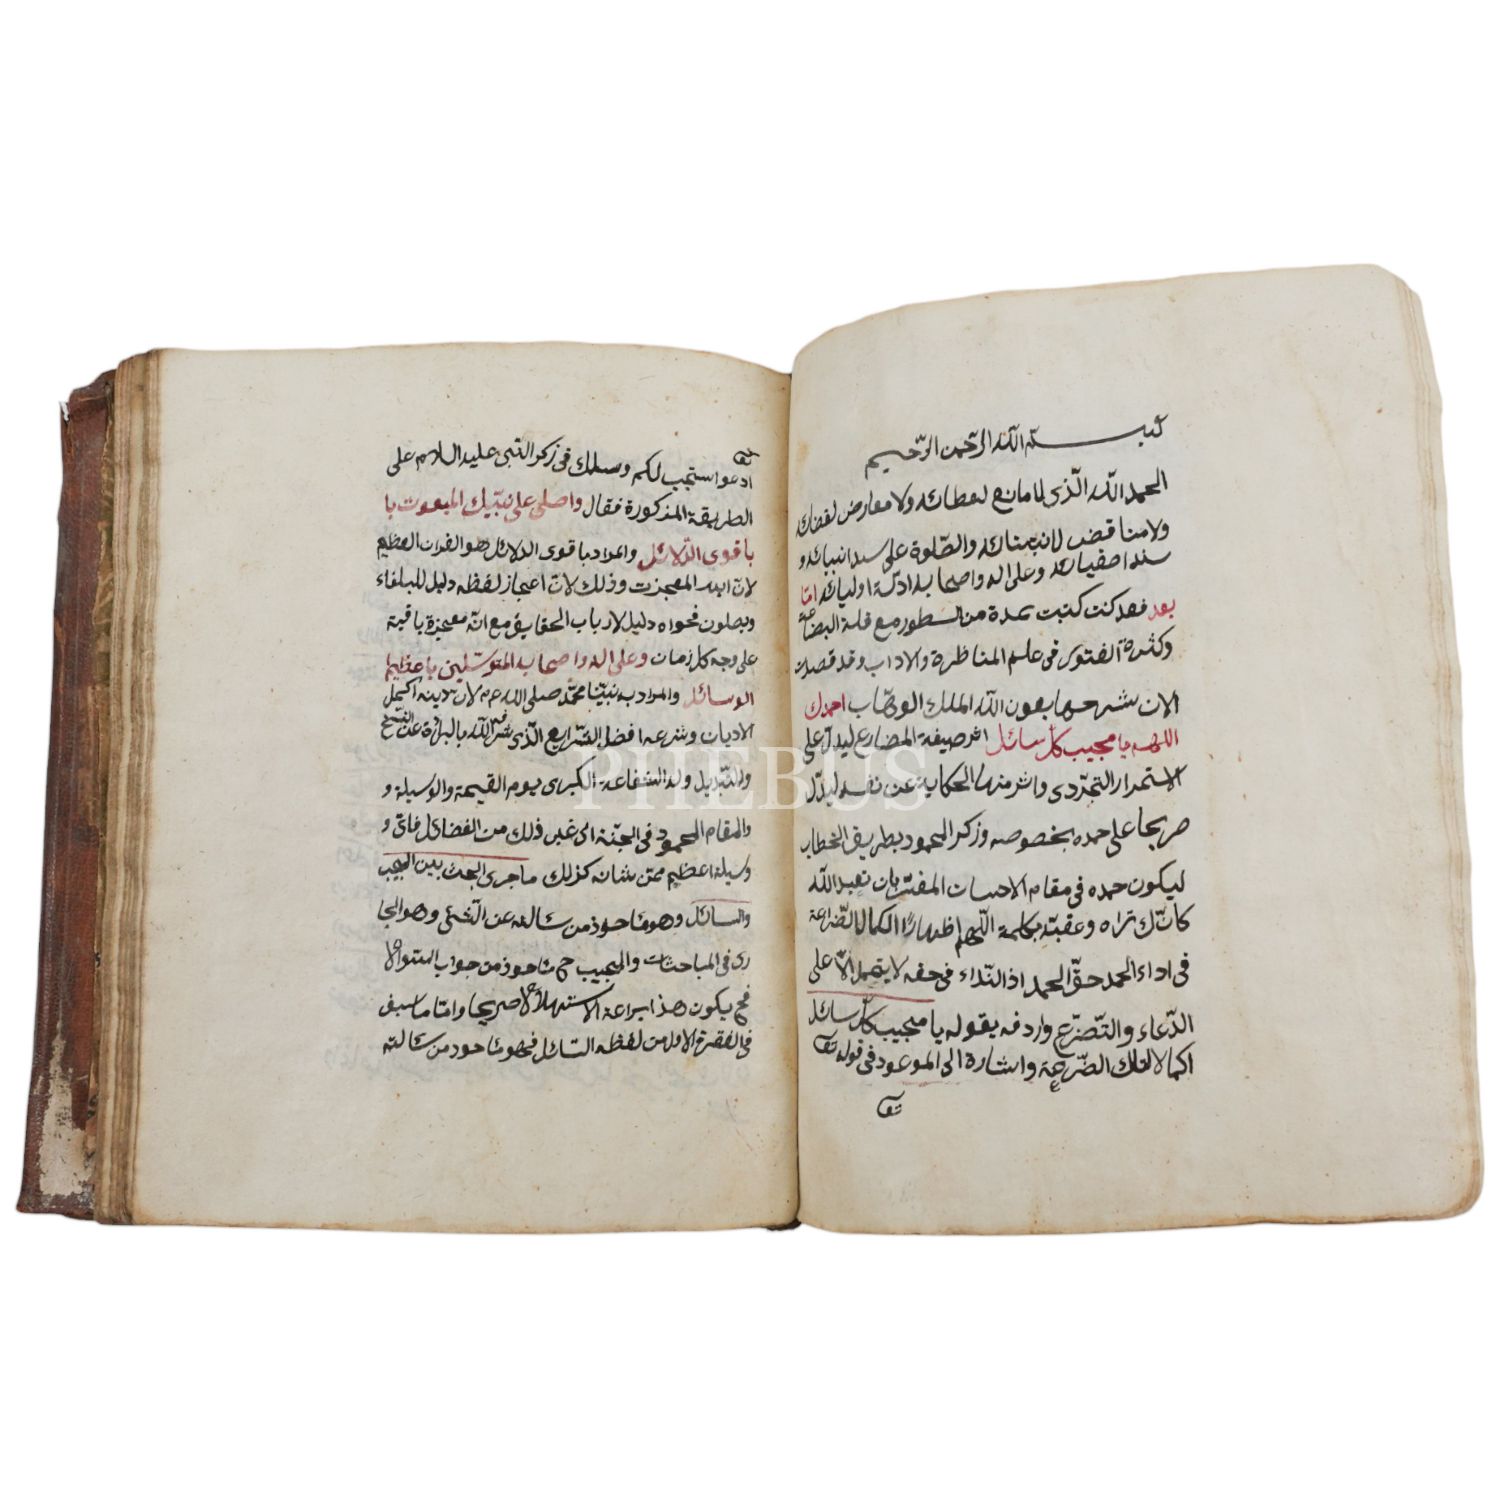 بسم الله الرحمن الرحيم
الحمد لله الذي لا مانع لعطائه ولا معارض لقضائه
ولا مناقض لانبيائه والصلوة على سيد انبيائه و
سند اصفيائه وعلى اله واصحابه ادلة اوليائه امّا
بعد فقد كنت كتبت نمدة من السطور مع قلة البضاعة
وكثرة الفتور في علم المناظرة والاداب وقد قصدت
الان شرحها بعون الله الملك الوهّاب احمدك
اللهم يا مجيب كل سائل اثر صيغة المضارع ليدل على
الاستمرار التجرّدى واثر منها الحكاية عن نفسه ليدلّ
صريحا على حمده بخصوصه وزكر المحمود بطريق الخطاب
ليكون حمده في مقام الاحسان المفسّر بان تعبد الله
كانّك تراه وعقبته بكلمة اللّهم اظهارًا لكمال الضّراعة
في اداء الحمد حقّ الحمد اذ النّداء في حقه لا يتحمل الاّ على
الدّعاء والتّضرّع واردفه بقوله يا مجيب كلّ سائل
اكمالا لتلك الضّرعة واشارة الى الموعود في قوله تعا
تعا
ادعوا استجب لكم وسلك في زكر النّبى عليه السلام على
الطريقة المذكورة فقال واصلى على نبيّك المبعوث با
باقوى الدّلائل والمراد باقوى الدلائل هو القران العظيم
لانّ ابهر المعجزت وذلك لانّ اعجاز لفظه دليل للبلغاء
وبطون فحواه دليل لارباب الحقايق مع انّه معجزة باقية
على وجه كل زمان وعلى اله واصحابه المتوسّلين باعظم
الوسائل والمراد به نبيّنا محمّد صلى الله عم لان دينه اكمل
الاديان وشرعه افضل الشّرايع الّذى شرّفه الله بالبراءة عن النسخ
والتّبديل وله الشفاعة الكبرى يوم القيمة والوسيلة و
والمقام المحمود في الجنّة الى غير ذلك من الفضائل فاىّ و
وسيلة اعظم ممّن شانه كذلك ماجرى البحث بين المجيب
والسائل وهو مأخوذ من سالته عن الشئ وهو الجا
رى في المباحثات والمجيب ح مأخوذ من جواب السؤال
فح يكون هذا براعة الاستهلال صريحا وامّا ما سبق
في الفقرة الاولى من لفظه السّائل فهو مأخوذ من سالته